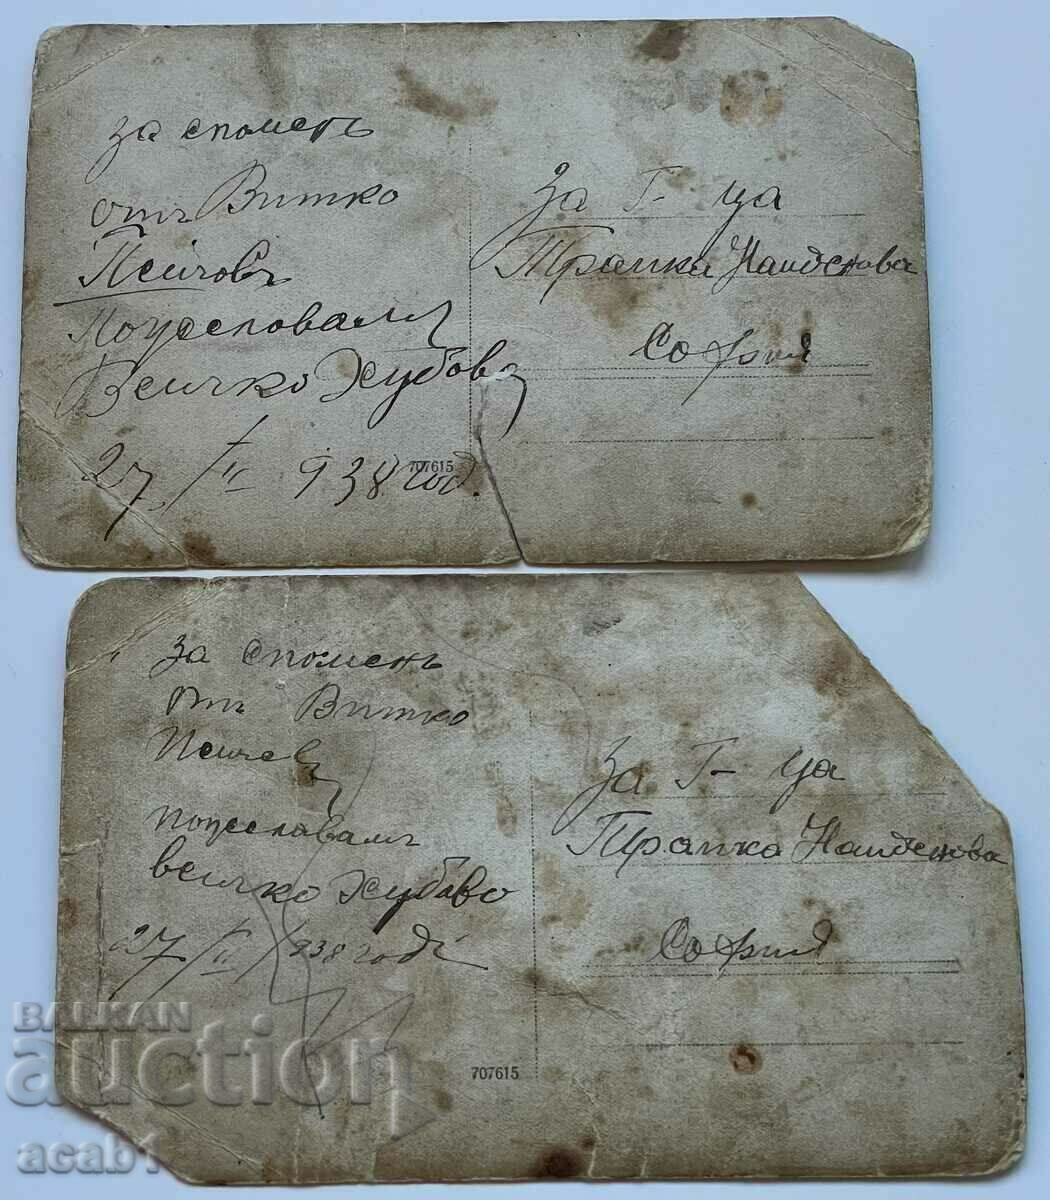 За споменъ
отъ Витко
Пейчовъ
Поцеловамъ
Всичко Хубаво
27/II 938 год.
707615
За Г-ца
Трапка Найденова
София
За споменъ
отъ Витко
Пейчевъ
поцеславамъ
всичко Хубаво
27/II/938 годъ
707615
За Г-ца
Трапка Найденова
София
BALKAN
auction
acab1